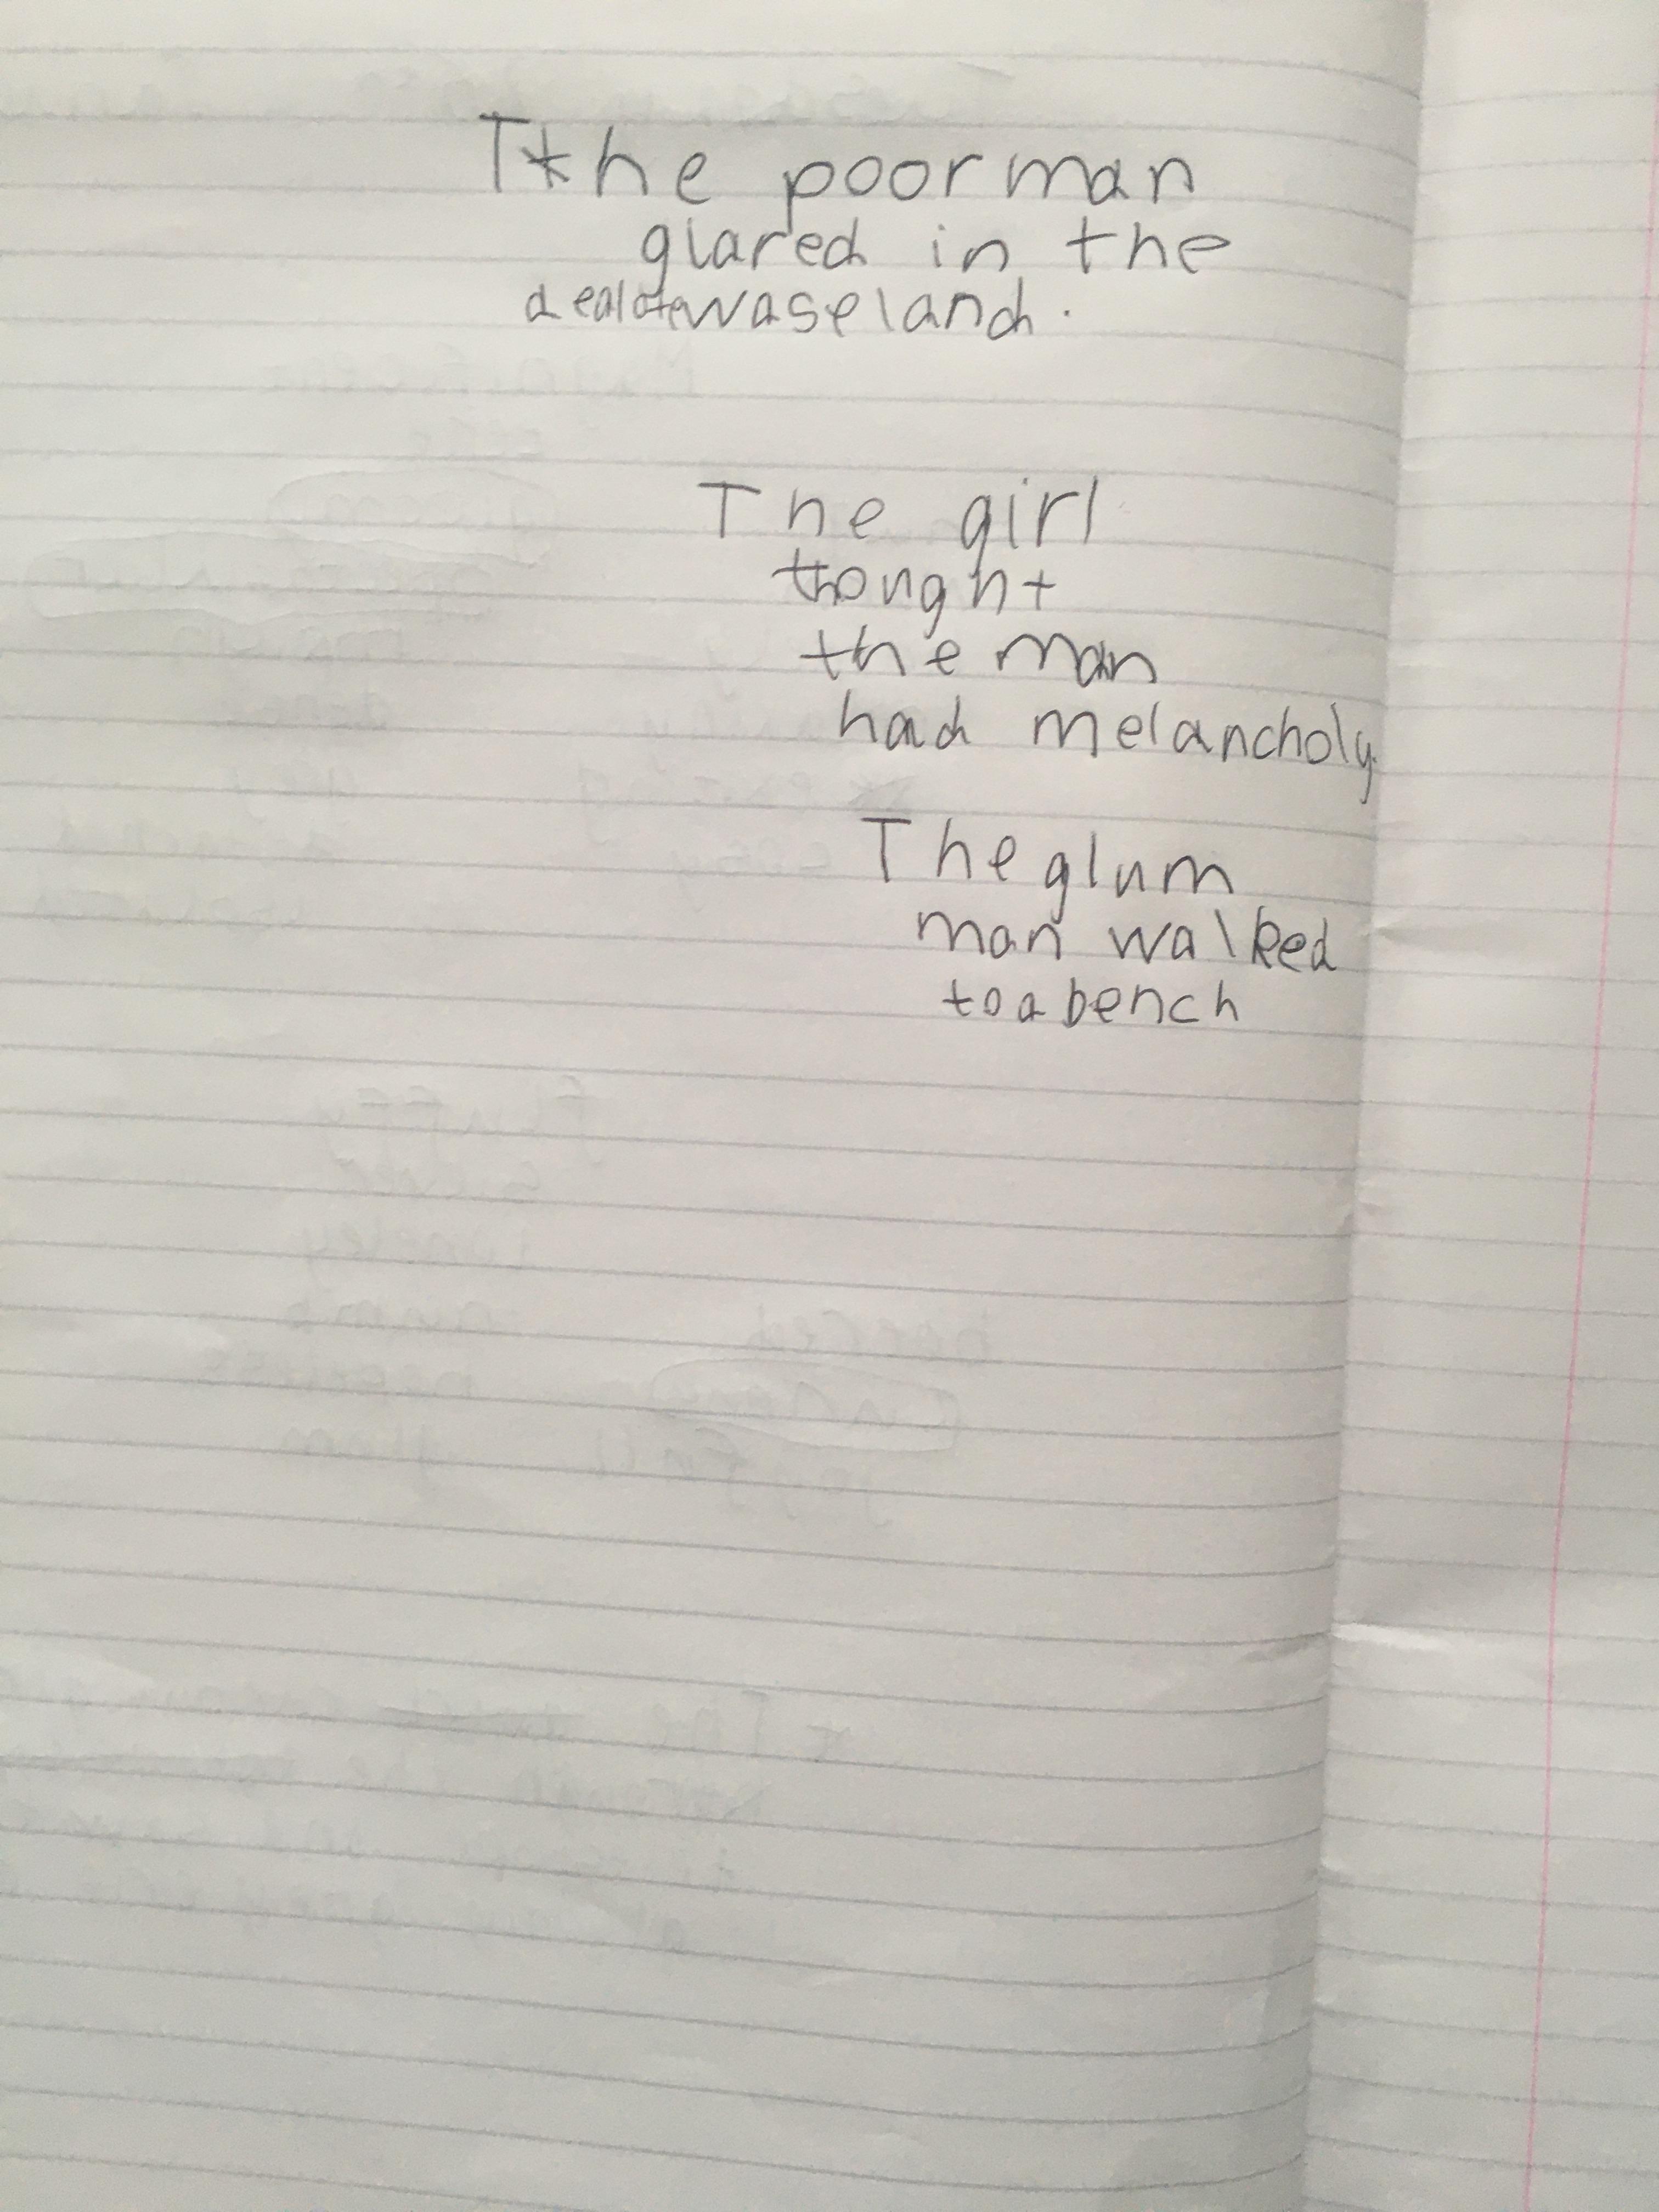 The poor man
glared in the
dealate waseland.
The girl
thought
the man
had melancholy.
The glum
man walked
to a bench